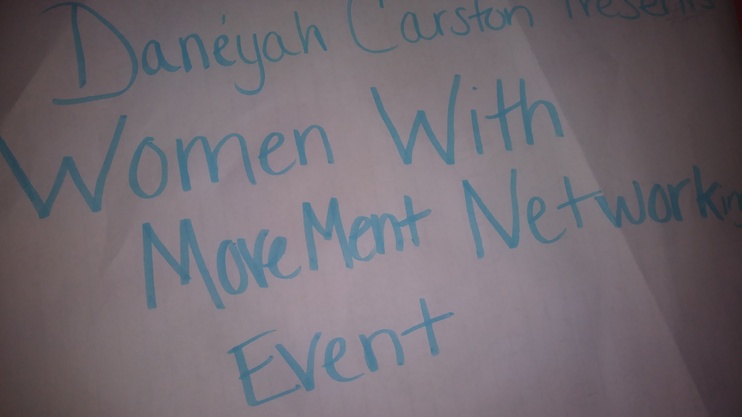 Danéyah Carston Presents
Women With
MoveMent Networking
Event